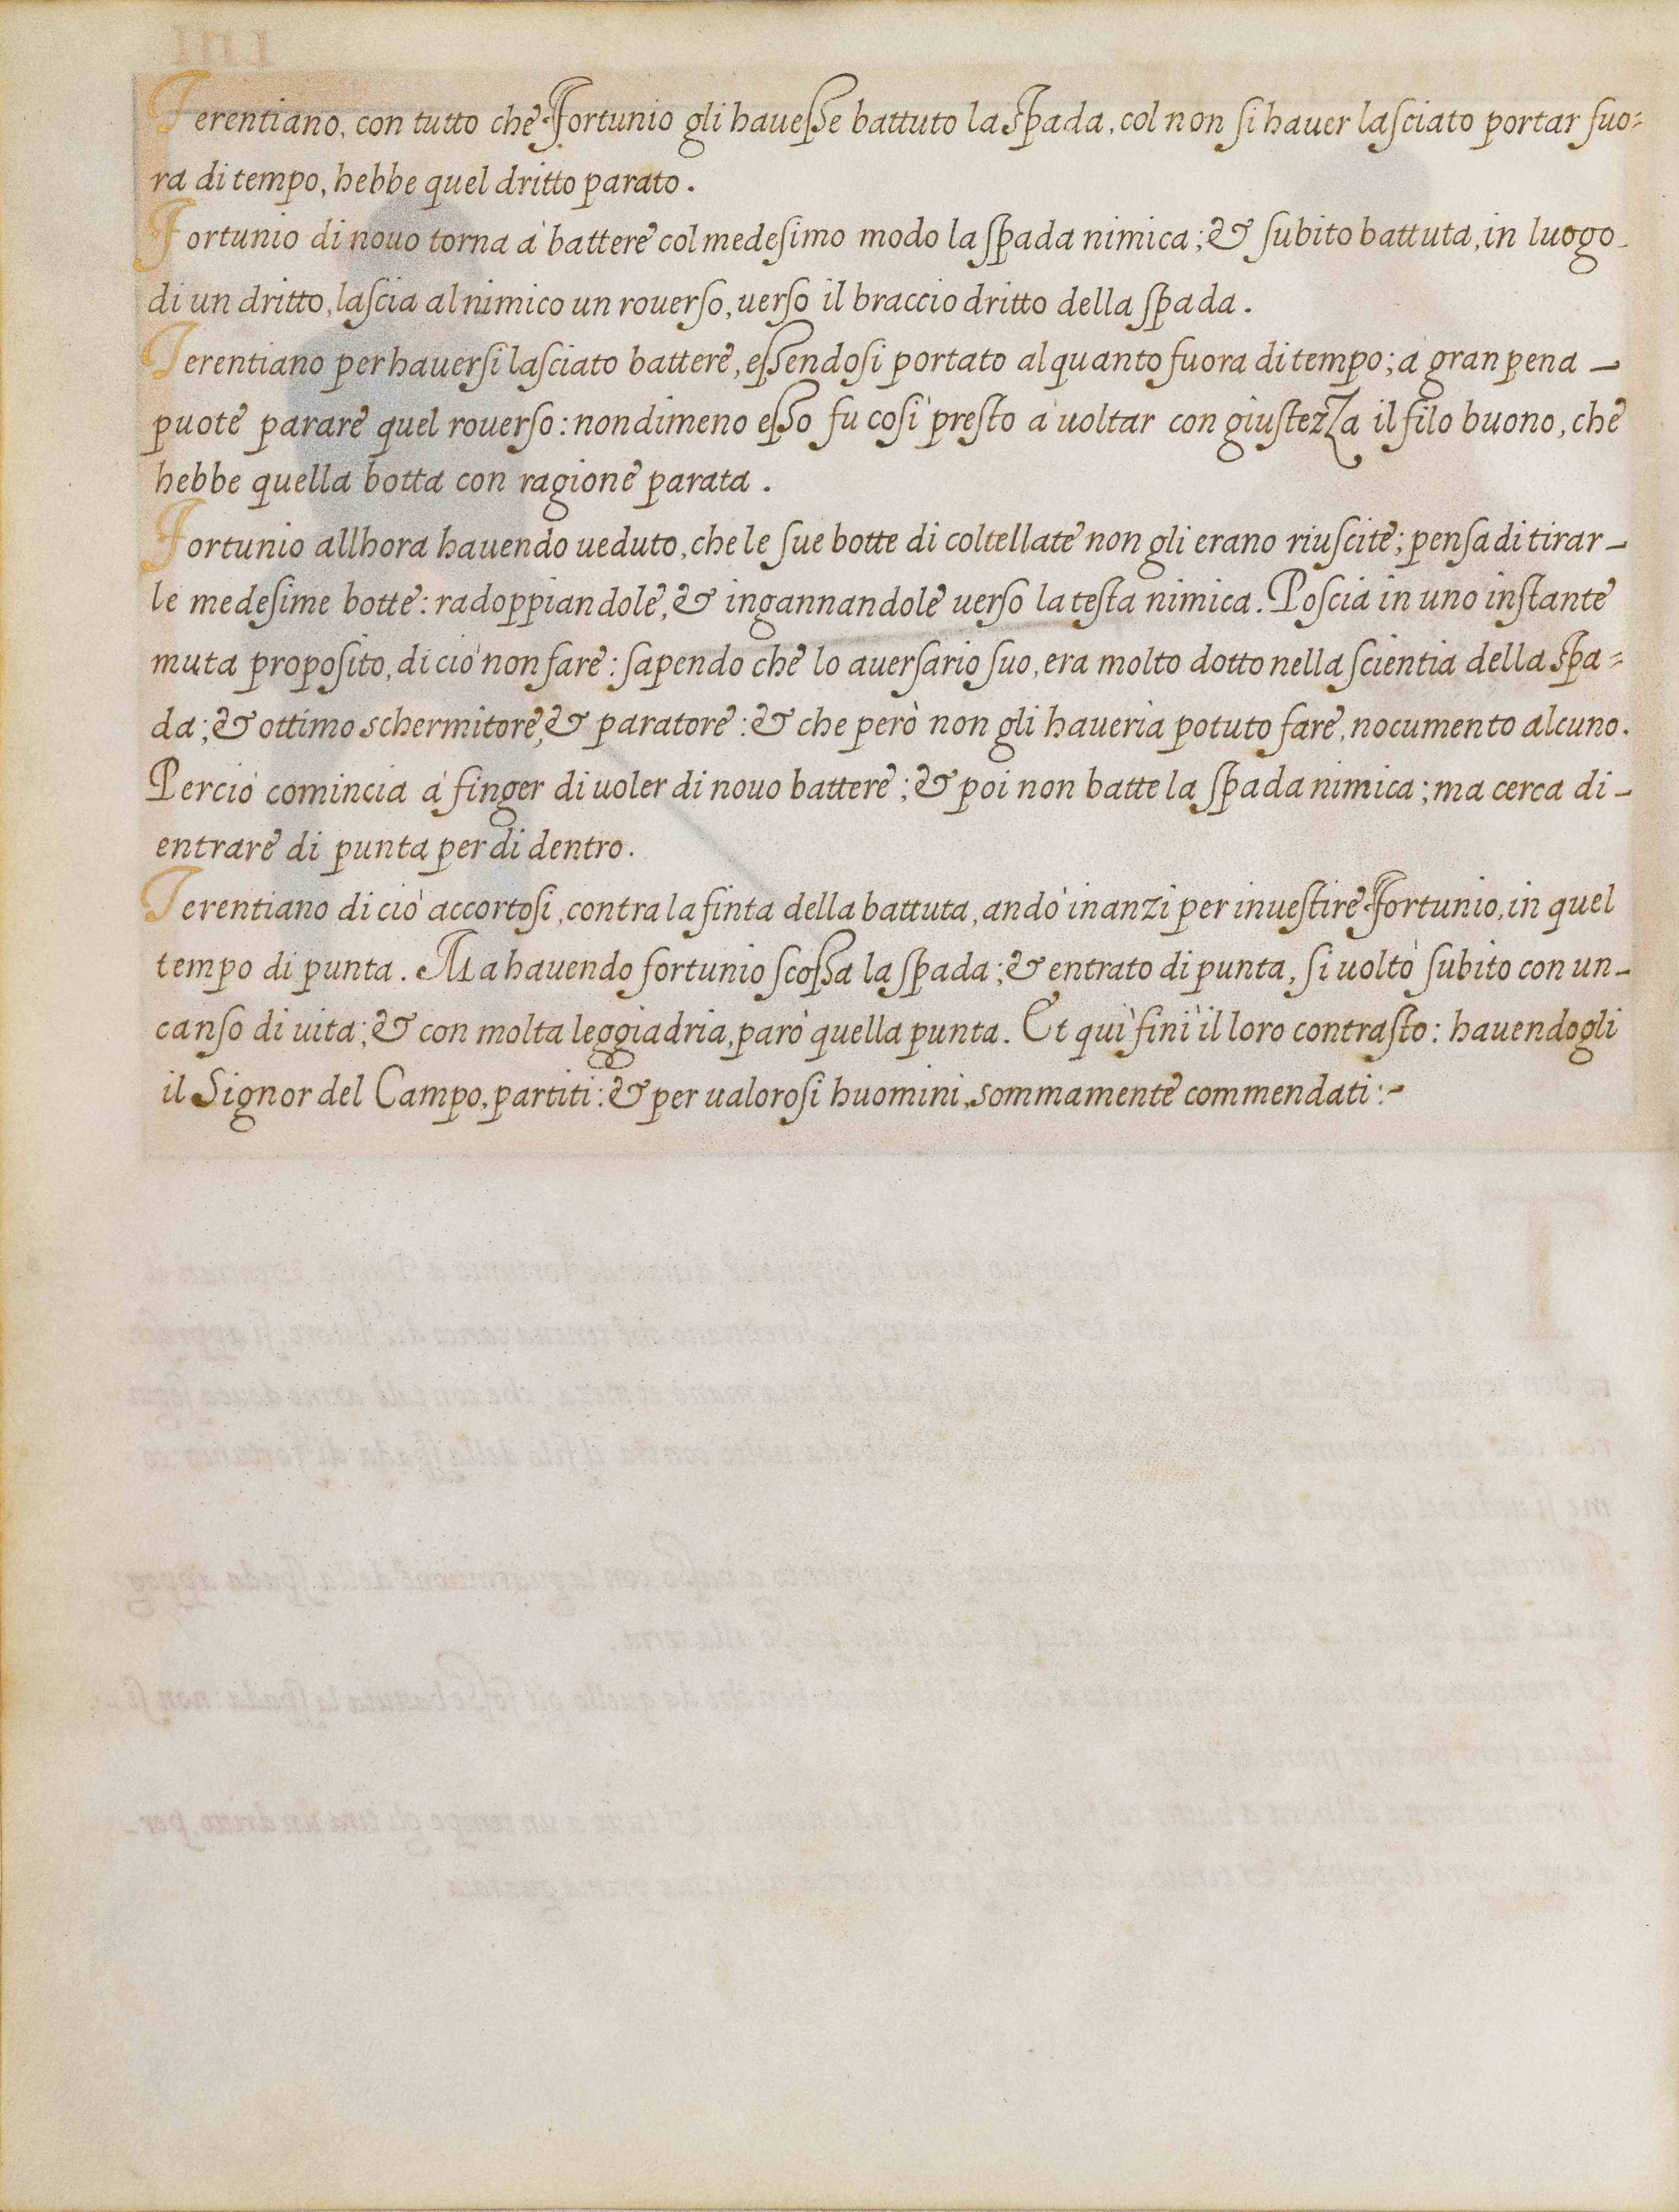 Terentiano, con tutto che Fortunio gli hauesse battuto la Spada, col non si hauer lasciato portar fuo=
ra di tempo, hebbe quel dritto parato.
Fortunio di nouo torna à battere col medesimo modo la spada nimica; & subito battuta, in luogo
di un dritto, lascia al nimico un rouerso, uerso il braccio dritto della spada.
Terentiano per hauersi lasciato battere, essendosi portato alquanto fuora di tempo; à gran pena
puote parare quel rouerso: nondimeno esso fu così presto à uoltar con giustezza il filo buono, che
hebbe quella botta con ragione parata.
Fortunio allhora hauendo ueduto, che le sue botte di coltellate non gli erano riuscite; pensa di tirar
le medesime botte: radoppiandole, & ingannandole uerso la testa nimica. Poscia in uno instante
muta proposito, di ciò non fare: sapendo che lo auersario suo, era molto dotto nella scientia della Spa=
da; & ottimo schermitore, & paratore: & che però non gli haueria potuto fare, nocumento alcuno.
Perciò comincia à finger di uoler di nouo battere; & poi non batte la spada nimica; ma cerca di
entrare di punta per di dentro.
Terentiano di ciò accortosi, contra la finta della battuta, andò inanzi per inuestire Fortunio, in quel
tempo di punta. Ma hauendo fortunio scossa la spada; & entrato di punta, si uoltò subito con un
canso di uita; & con molta leggiadria, parò quella punta. Et quì finì il loro contrasto: hauendogli
il Signor del Campo, partiti: & per ualorosi huomini, sommamente commendati:~